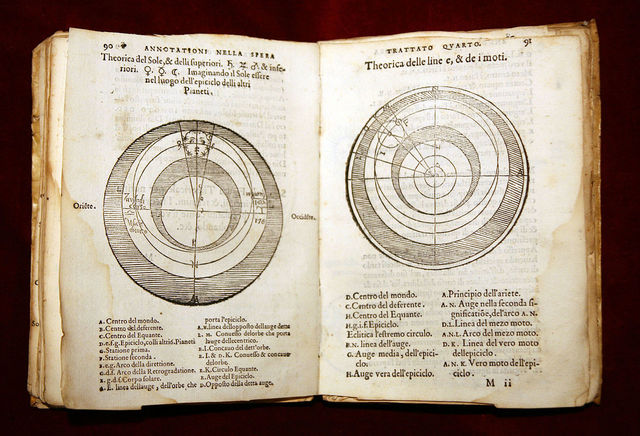 90
ANNOTATIONI NELLA SPERA
Theorica del Sole, & delli superiori. ♄ ♃ ♂ & infe-
riori. ♀. ☿. ☾. Imaginando il Sole essere
nel luogo dell'epiciclo delli altri
Pianeti.
Oriēte.
Occidēte.
A. Centro del mondo.
B. Centro del deferente.
C. Centro del Equante.
D.e.f.g. Epiciclo, colli altri s. Pianeti
G. Statione prima.
F. Statione seconda.
E.e.g. Arco della direttione.
G.d.f. Arco della Retrogradatione.
E.g.d.f. Corpo solare.
linea dell'auge, dell'orbe che
porta l'epiciclo.
A.v. linea dell'opposto dell'auge detta
Convesso dell'orbe che porta
lauge dell'eccentrico.
I.I. Concavo del dett'orbe.
I. & D.K. Convesso & concavo
delorbe.
K. Circulo Equante.
Auge del Epiciclo.
D. Opposto della detta auge.
TRATTATO QVARTO.
91
Theorica delle line e, & de i moti.
D. Centro del mondo.
C. Centro del deferente.
H. Centro del Equante.
H.g.i.f. Epiciclo.
Eclitica l'estremo circulo.
B.N. linea dell'auge.
G. Auge media, dell'epici-
clo.
H. Auge vera dell'epiciclo.
A. Principio dell'ariete.
A. N. Auge nella seconda si-
gnificatiōe, del'arco A. N.
D.L. Linea del mezo moto.
A.N.L. Arco del mezo moto.
D. K. Linea del vero moto
dell'epiciclo.
A. N. K. Vero moto dell'epi-
ciclo.
M ii